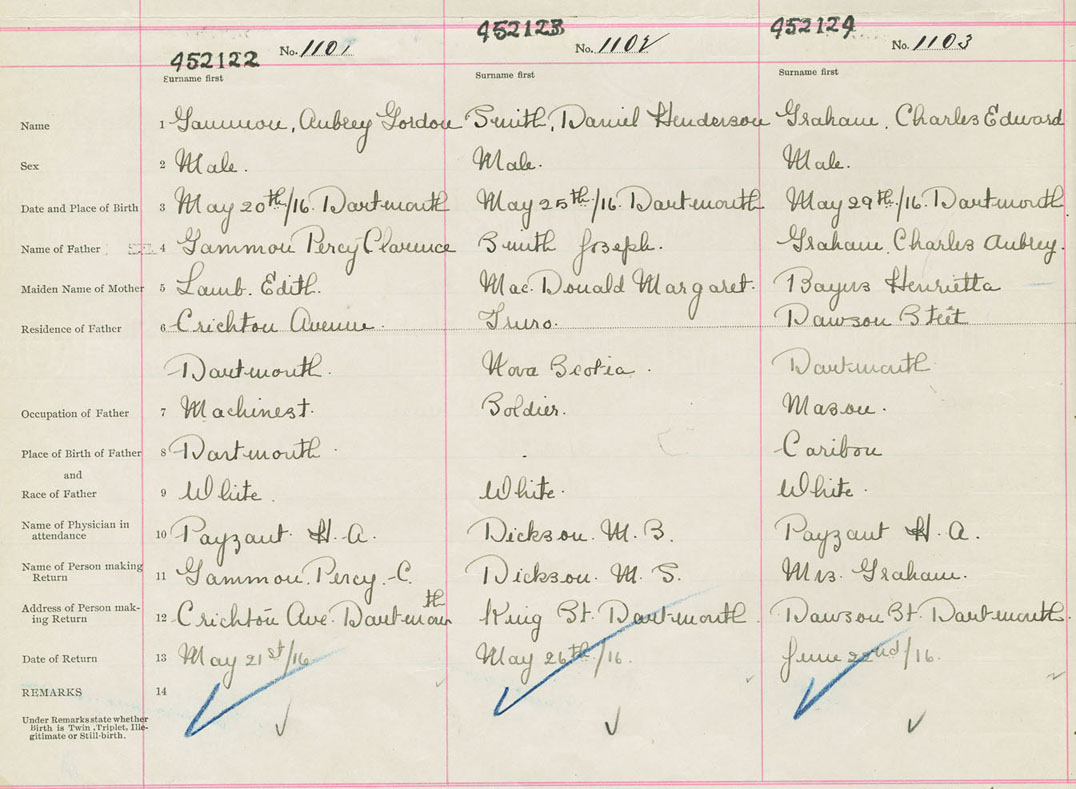 452122 No. 1101 452123 No. 1102 452124 No. 1103
Surname first Surname first Surname first
Name 1 Gammon, Aubrey Gordon Smith, Daniel Henderson Graham, Charles Edward
Sex 2 Male. Male. Male.
Date and Place of Birth 3 May 20th/16. Dartmouth May 25th/16. Dartmouth May 29th/16. Dartmouth.
Name of Father 4 Gammon Percy Clarence Smith Joseph. Graham, Charles Aubrey.
Maiden Name of Mother 5 Lamb. Edith. Mac. Donald Margaret. Bayns Henrietta
Residence of Father 6 Crichton Avenue. Truro. Dawson Steet
Dartmouth. Nova Scotia. Dartmouth
Occupation of Father 7 Machinest. Soldier. Mason.
Place of Birth of Father 8 Dartmouth. Caribou
and
Race of Father 9 White. White. White.
Name of Physician in
attendance 10 Payzant H. A. Dickson. M. B. Payzant H A.
Name of Person making
Return 11 Gammon, Percy.-C. Dickson. M. S. Mrs. Graham.
Address of Person mak-
ing Return 12 Crichton Ave. Dartmouth King St. Dartmouth. Dawson St. Dartmouth.
Date of Return 13 May 21st/16 May 26th/16. June 22nd/16.
REMARKS 14
Under Remarks state whether
Birth is Twin, Triplet, Ille-
gitimate or Still-birth.